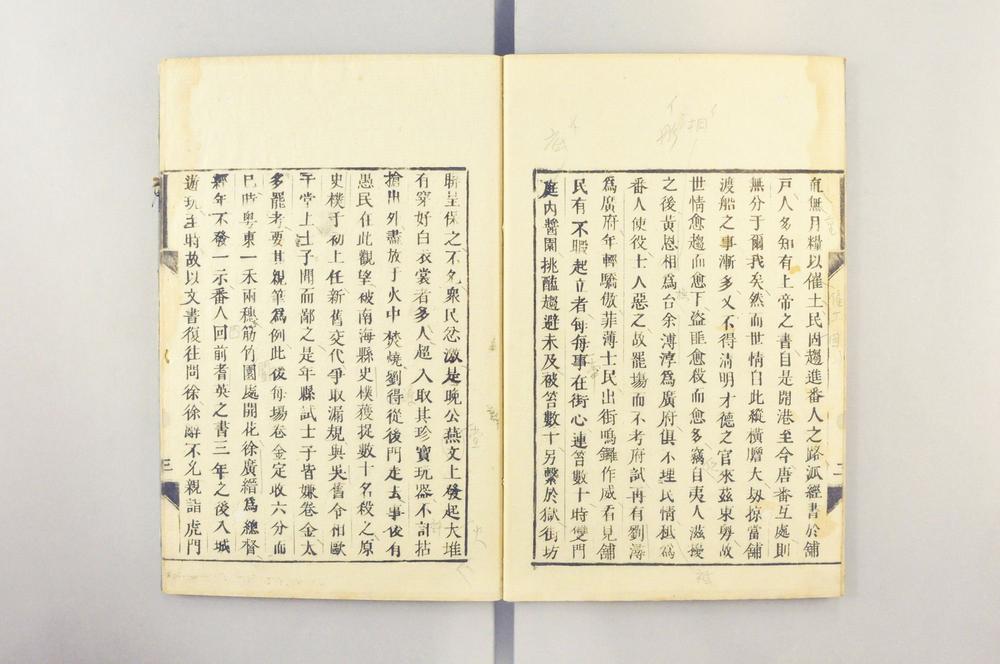 無月糧以催土民因趨進番人之路派經書於舖
戸人多知有上帝之書自是開港至今唐番互處則
無分于爾我矣然而世情自此縱橫膽大刼掠富舖
渡船之事漸多又不得清明才德之官來茲東粤故
世情愈趨而愈下盜匪愈殺而愈多竊自夷人滋擾
之後黃恩相爲台余溥淳爲廣府俱不理民情秪爲
番人使役士人惡之故罷塲而不考府試再有劉潯
爲廣府年輕驕傲菲薄士民出街鳴鑼作威看見舖
民有不暇起立者每每事在街心連笞數十時雙門
底內醬園挑醢趨避未及被笞數十另繫於獄街坊
聯呈保之不允衆民忿激是晚公燕文上發起大堆
有穿好白衣裳者多人超入取其珍寶玩器不計拈
搶出外盡放于火中焚燒劉得從後門走去事後有
愚民在此觀望被南海縣史樸獲捉數十名殺之原
史樸于初上任新舊交代爭取漏規與吳舊令相毆
于堂上士子聞而鄙之是年縣試士子皆嫌卷金太
多罷考要其親筆爲例此後每塲卷金定收六分而
已時粤東一禾兩穗筋竹園處開花徐廣縉爲總督
經年不發一示番人回前耆英之書三年之後入城
遊玩主時故以文書復往問徐徐辭不允親詣虎門
二
三